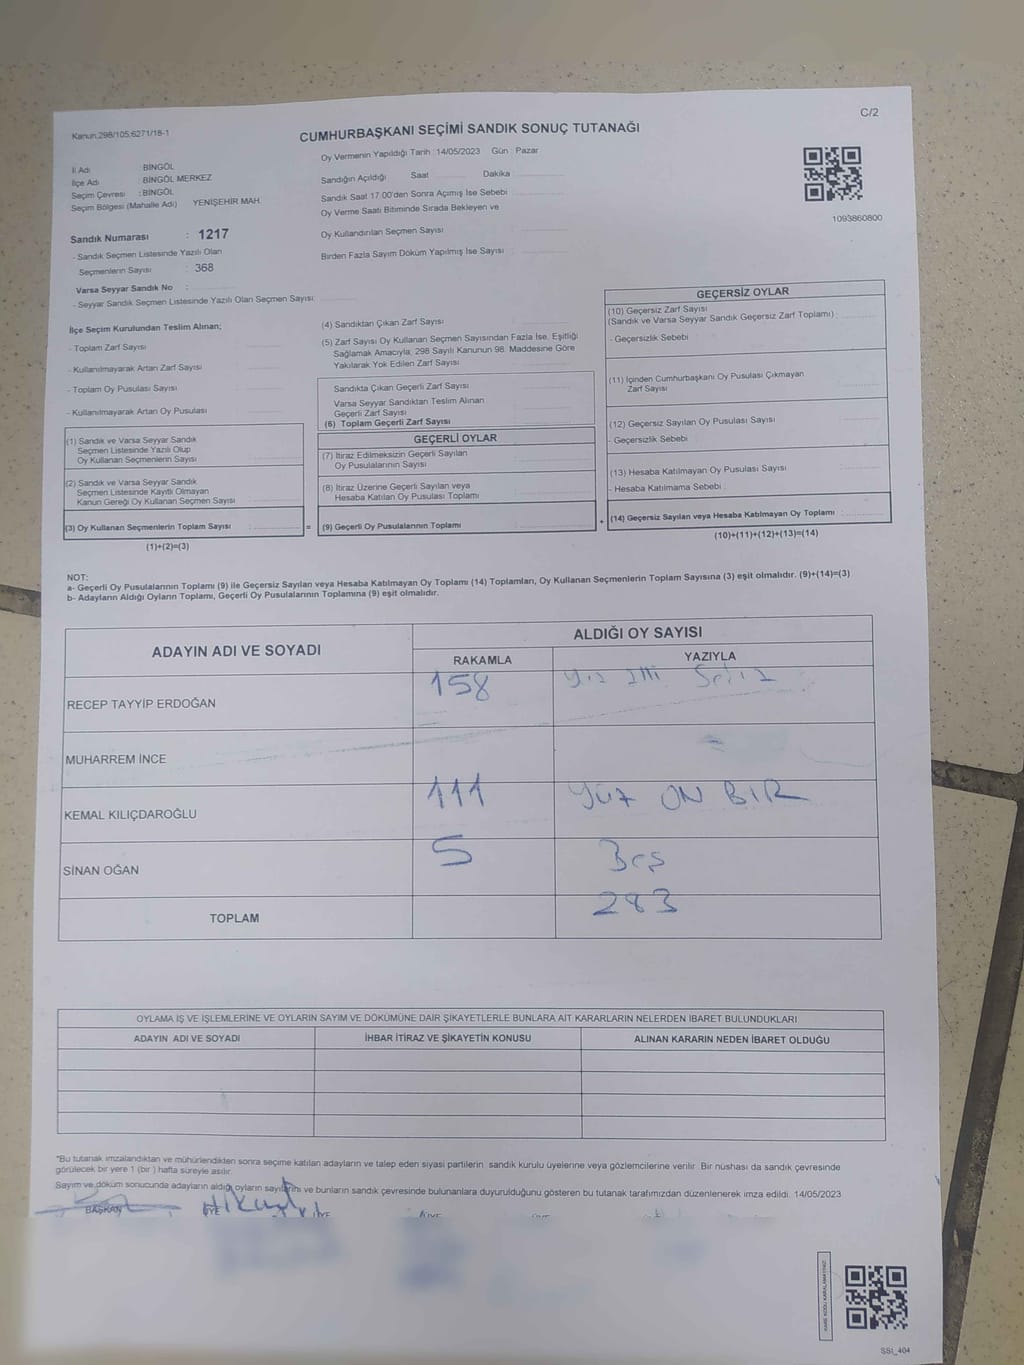 Kanun.298/105;6271/18-1
C/2
CUMHURBAŞKANI SEÇİMİ SANDIK SONUÇ TUTANAĞI
Oy Vermenin Yapıldığı Tarih :14/05/2023 Gün : Pazar
İl Adı : BİNGÖL
İlçe Adı : BİNGÖL MERKEZ
Seçim Çevresi : BİNGÖL
Seçim Bölgesi (Mahalle Adı) YENİŞEHİR MAH.
Sandık Numarası : 1217
- Sandık Seçmen Listesinde Yazılı Olan
Seçmenlerin Sayısı : 368
Varsa Seyyar Sandık No :
- Seyyar Sandık Seçmen Listesinde Yazılı Olan Seçmen Sayısı:
Sandığın Açıldığı Saat : Dakika :
Sandık Saat 17:00'den Sonra Açımış İse Sebebi :
Oy Verme Saati Bitiminde Sırada Bekleyen ve
Oy Kullandırılan Seçmen Sayısı :
Birden Fazla Sayım Döküm Yapılmış İse Sayısı :
1093860800
İlçe Seçim Kurulundan Teslim Alınan;
- Toplam Zarf Sayısı
- Kullanılmayarak Artan Zarf Sayısı
- Toplam Oy Pusulası Sayısı
- Kullanılmayarak Artan Oy Pusulası
(1) Sandık ve Varsa Seyyar Sandık
Seçmen Listesinde Yazılı Olup
Oy Kullanan Seçmenlerin Sayısı
(2) Sandık ve Varsa Seyyar Sandık
Seçmen Listesinde Kayıtlı Olmayan
Kanun Gereği Oy Kullanan Seçmen Sayısı
(3) Oy Kullanan Seçmenlerin Toplam Sayısı :
(1)+(2)=(3)
(4) Sandıktan Çıkan Zarf Sayısı
(5) Zarf Sayısı Oy Kullanan Seçmen Sayısından Fazla İse, Eşitliği
Sağlamak Amacıyla, 298 Sayılı Kanunun 98. Maddesine Göre
Yakılarak Yok Edilen Zarf Sayısı
Sandıkta Çıkan Geçerli Zarf Sayısı
Varsa Seyyar Sandıktan Teslim Alınan
Geçerli Zarf Sayısı
(6) Toplam Geçerli Zarf Sayısı
GEÇERLİ OYLAR
(7) İtiraz Edilmeksizin Geçerli Sayılan
Oy Pusulalarının Sayısı
(8) İtiraz Üzerine Geçerli Sayılan veya
Hesaba Katılan Oy Pusulası Toplamı
= (9) Geçerli Oy Pusulalarının Toplamı
GEÇERSİZ OYLAR
(10) Geçersiz Zarf Sayısı
(Sandık ve Varsa Seyyar Sandık Geçersiz Zarf Toplamı) :
- Geçersizlik Sebebi
(11) İçinden Cumhurbaşkanı Oy Pusulası Çıkmayan
Zarf Sayısı
(12) Geçersiz Sayılan Oy Pusulası Sayısı
- Geçersizlik Sebebi
(13) Hesaba Katılmayan Oy Pusulası Sayısı
- Hesaba Katılmama Sebebi
+ (14) Geçersiz Sayılan veya Hesaba Katılmayan Oy Toplamı :
(10)+(11)+(12)+(13)=(14)
NOT:
a- Geçerli Oy Pusulalarının Toplamı (9) ile Geçersiz Sayılan veya Hesaba Katılmayan Oy Toplamı (14) Toplamları, Oy Kullanan Seçmenlerin Toplam Sayısına (3) eşit olmalıdır. (9)+(14)=(3)
b- Adayların Aldığı Oyların Toplamı, Geçerli Oy Pusulalarının Toplamına (9) eşit olmalıdır.
ADAYIN ADI VE SOYADI
ALDIĞI OY SAYISI
RAKAMLA YAZIYLA
RECEP TAYYİP ERDOĞAN 158
MUHARREM İNCE
KEMAL KILIÇDAROĞLU 111 Yüz ON BIR
SİNAN OĞAN 5 Beş
TOPLAM 283
OYLAMA İŞ VE İŞLEMLERİNE VE OYLARIN SAYIM VE DÖKÜMÜNE DAİR ŞİKAYETLERLE BUNLARA AİT KARARLARIN NELERDEN İBARET BULUNDUKLARI
ADAYIN ADI VE SOYADI İHBAR İTİRAZ VE ŞİKAYETİN KONUSU ALINAN KARARIN NEDEN İBARET OLDUĞU
*Bu tutanak imzalandıktan ve mühürlendikten sonra seçime katılan adayların ve talep eden siyasi partilerin sandık kurulu üyelerine veya gözlemcilerine verilir. Bir nüshası da sandık çevresinde
görülecek bir yere 1 (bir ) hafta süreyle asılır.
Sayım ve döküm sonucunda adayların aldığı oyların sayılarını ve bunların sandık çevresinde bulunanlara duyurulduğunu gösteren bu tutanak tarafımızdan düzenlenerek imza edildi. 14/05/2023
BAŞKAN ÜYE
SSİ_404